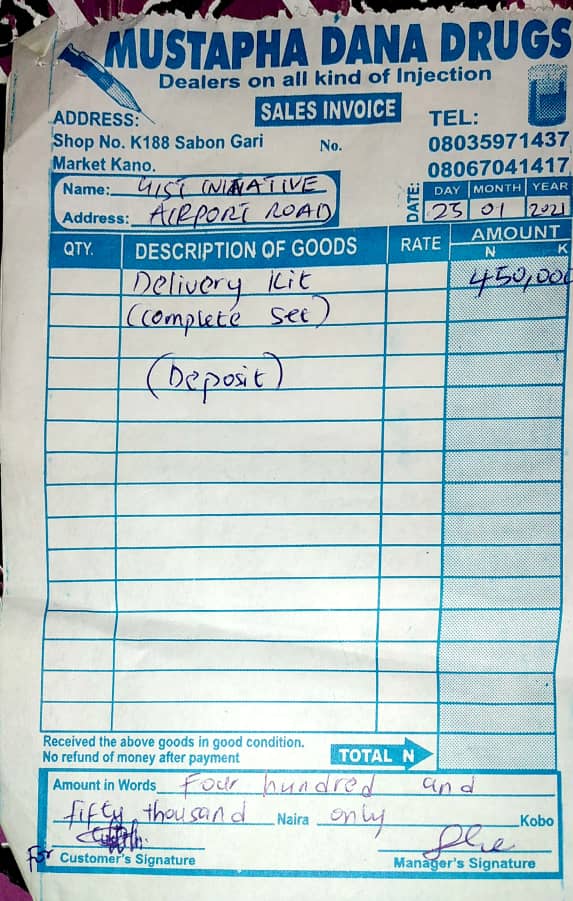 MUSTAPHA DANA DRUGS
Dealers on all kind of Injection
SALES INVOICE
ADDRESS:
Shop No. K188 Sabon Gari
Market Kano.
No.
TEL:
08035971437
08067041417
Name: 4IST INITIATIVE
Address: AIRPORT ROAD
DATE: DAY MONTH YEAR
25 01 2021
QTY. DESCRIPTION OF GOODS RATE AMOUNT
N K
Delivery Kit 450,000
(Complete Set)
(Deposit)
Received the above goods in good condition.
No refund of money after payment
TOTAL N
Amount in Words Four hundred and
fifty thousand Naira only Kobo
for Customer's Signature
Manager's Signature